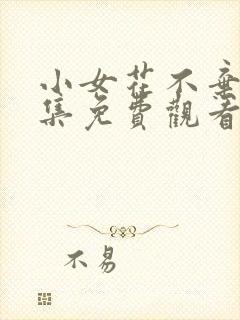 小女花不棄
集免費觀看
不易